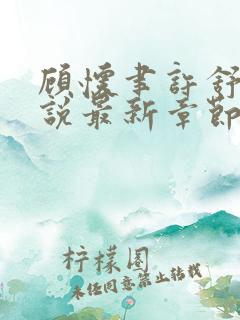 顾怀聿许舒
说最新章节
柠檬圈
未经同意禁止转载